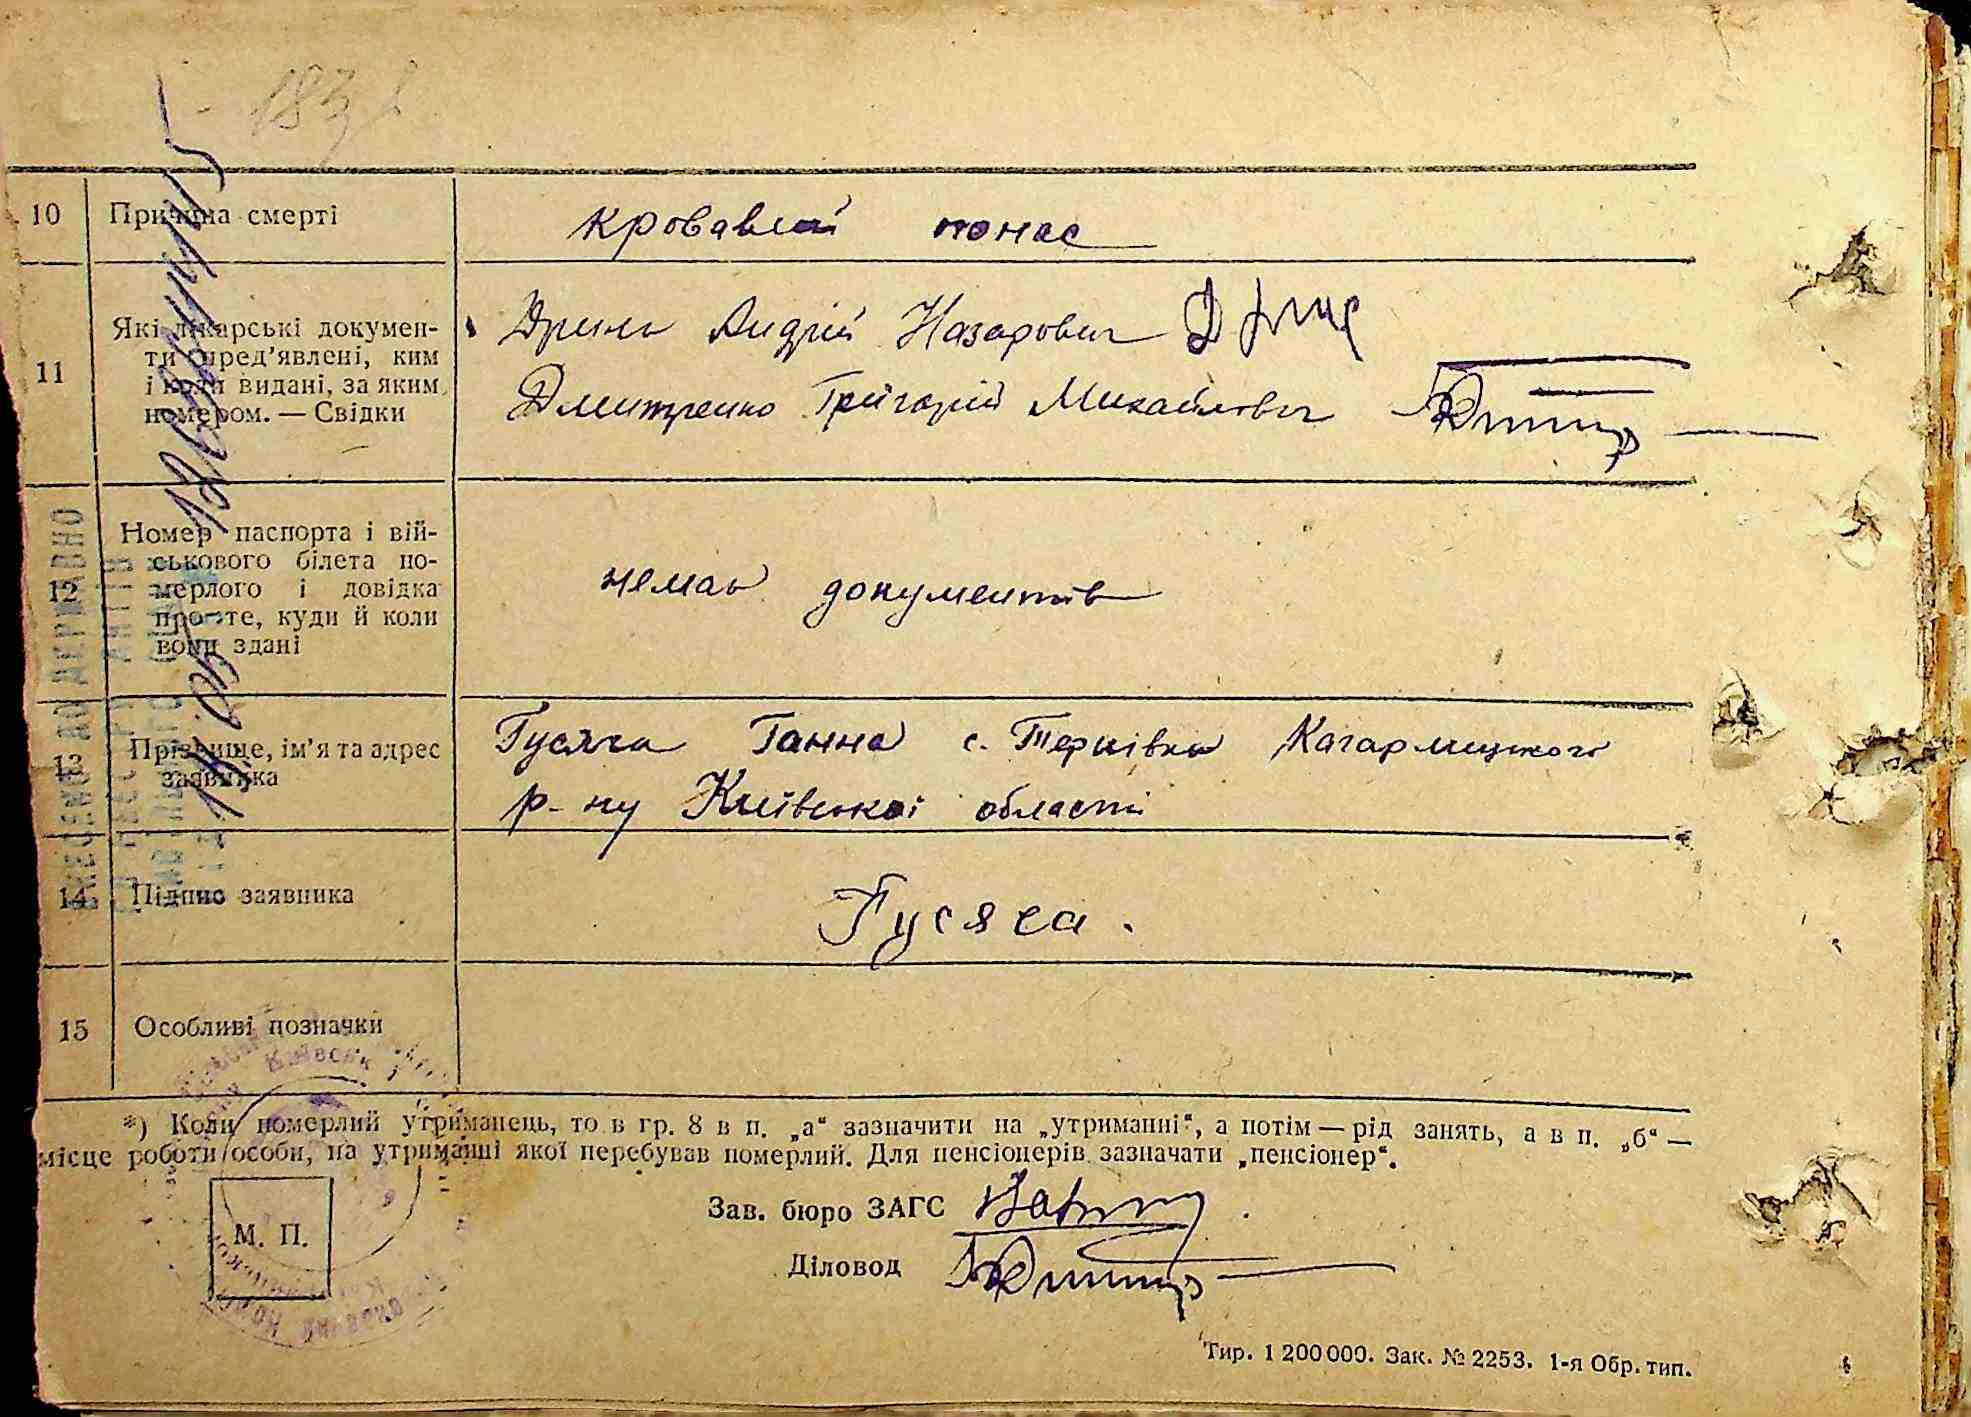 183
10 Причина смерті кровавий понос
11 Які лікарські докумен-
ти пред’явлені, ким
і коли видані, за яким
номером. — Свідки
Андрій Назарович
Дмитренко Григорій Михайлович
12 Номер паспорта і вій-
ськового білета по-
мерлого і довідка
про те, куди й коли
вони здані
немає документів
13 Прізвище, ім’я та адрес
заявника
Гусяча Ганна с. Терпівка Кагарлицького
р-ну Київської області
14 Підпис заявника Гусяча.
15 Особливі позначки
*) Коли померлий утриманець, то в гр. 8 в п. „а“ зазначити на „утриманні“, а потім — рід занять, а в п. „б“ —
місце роботи особи, на утриманні якої перебував померлий. Для пенсіонерів зазначати „пенсіонер“.
М. П.
Зав. бюро ЗАГС
Діловод
Тир. 1 200 000. Зак. № 2253. 1-я Обр. тип.